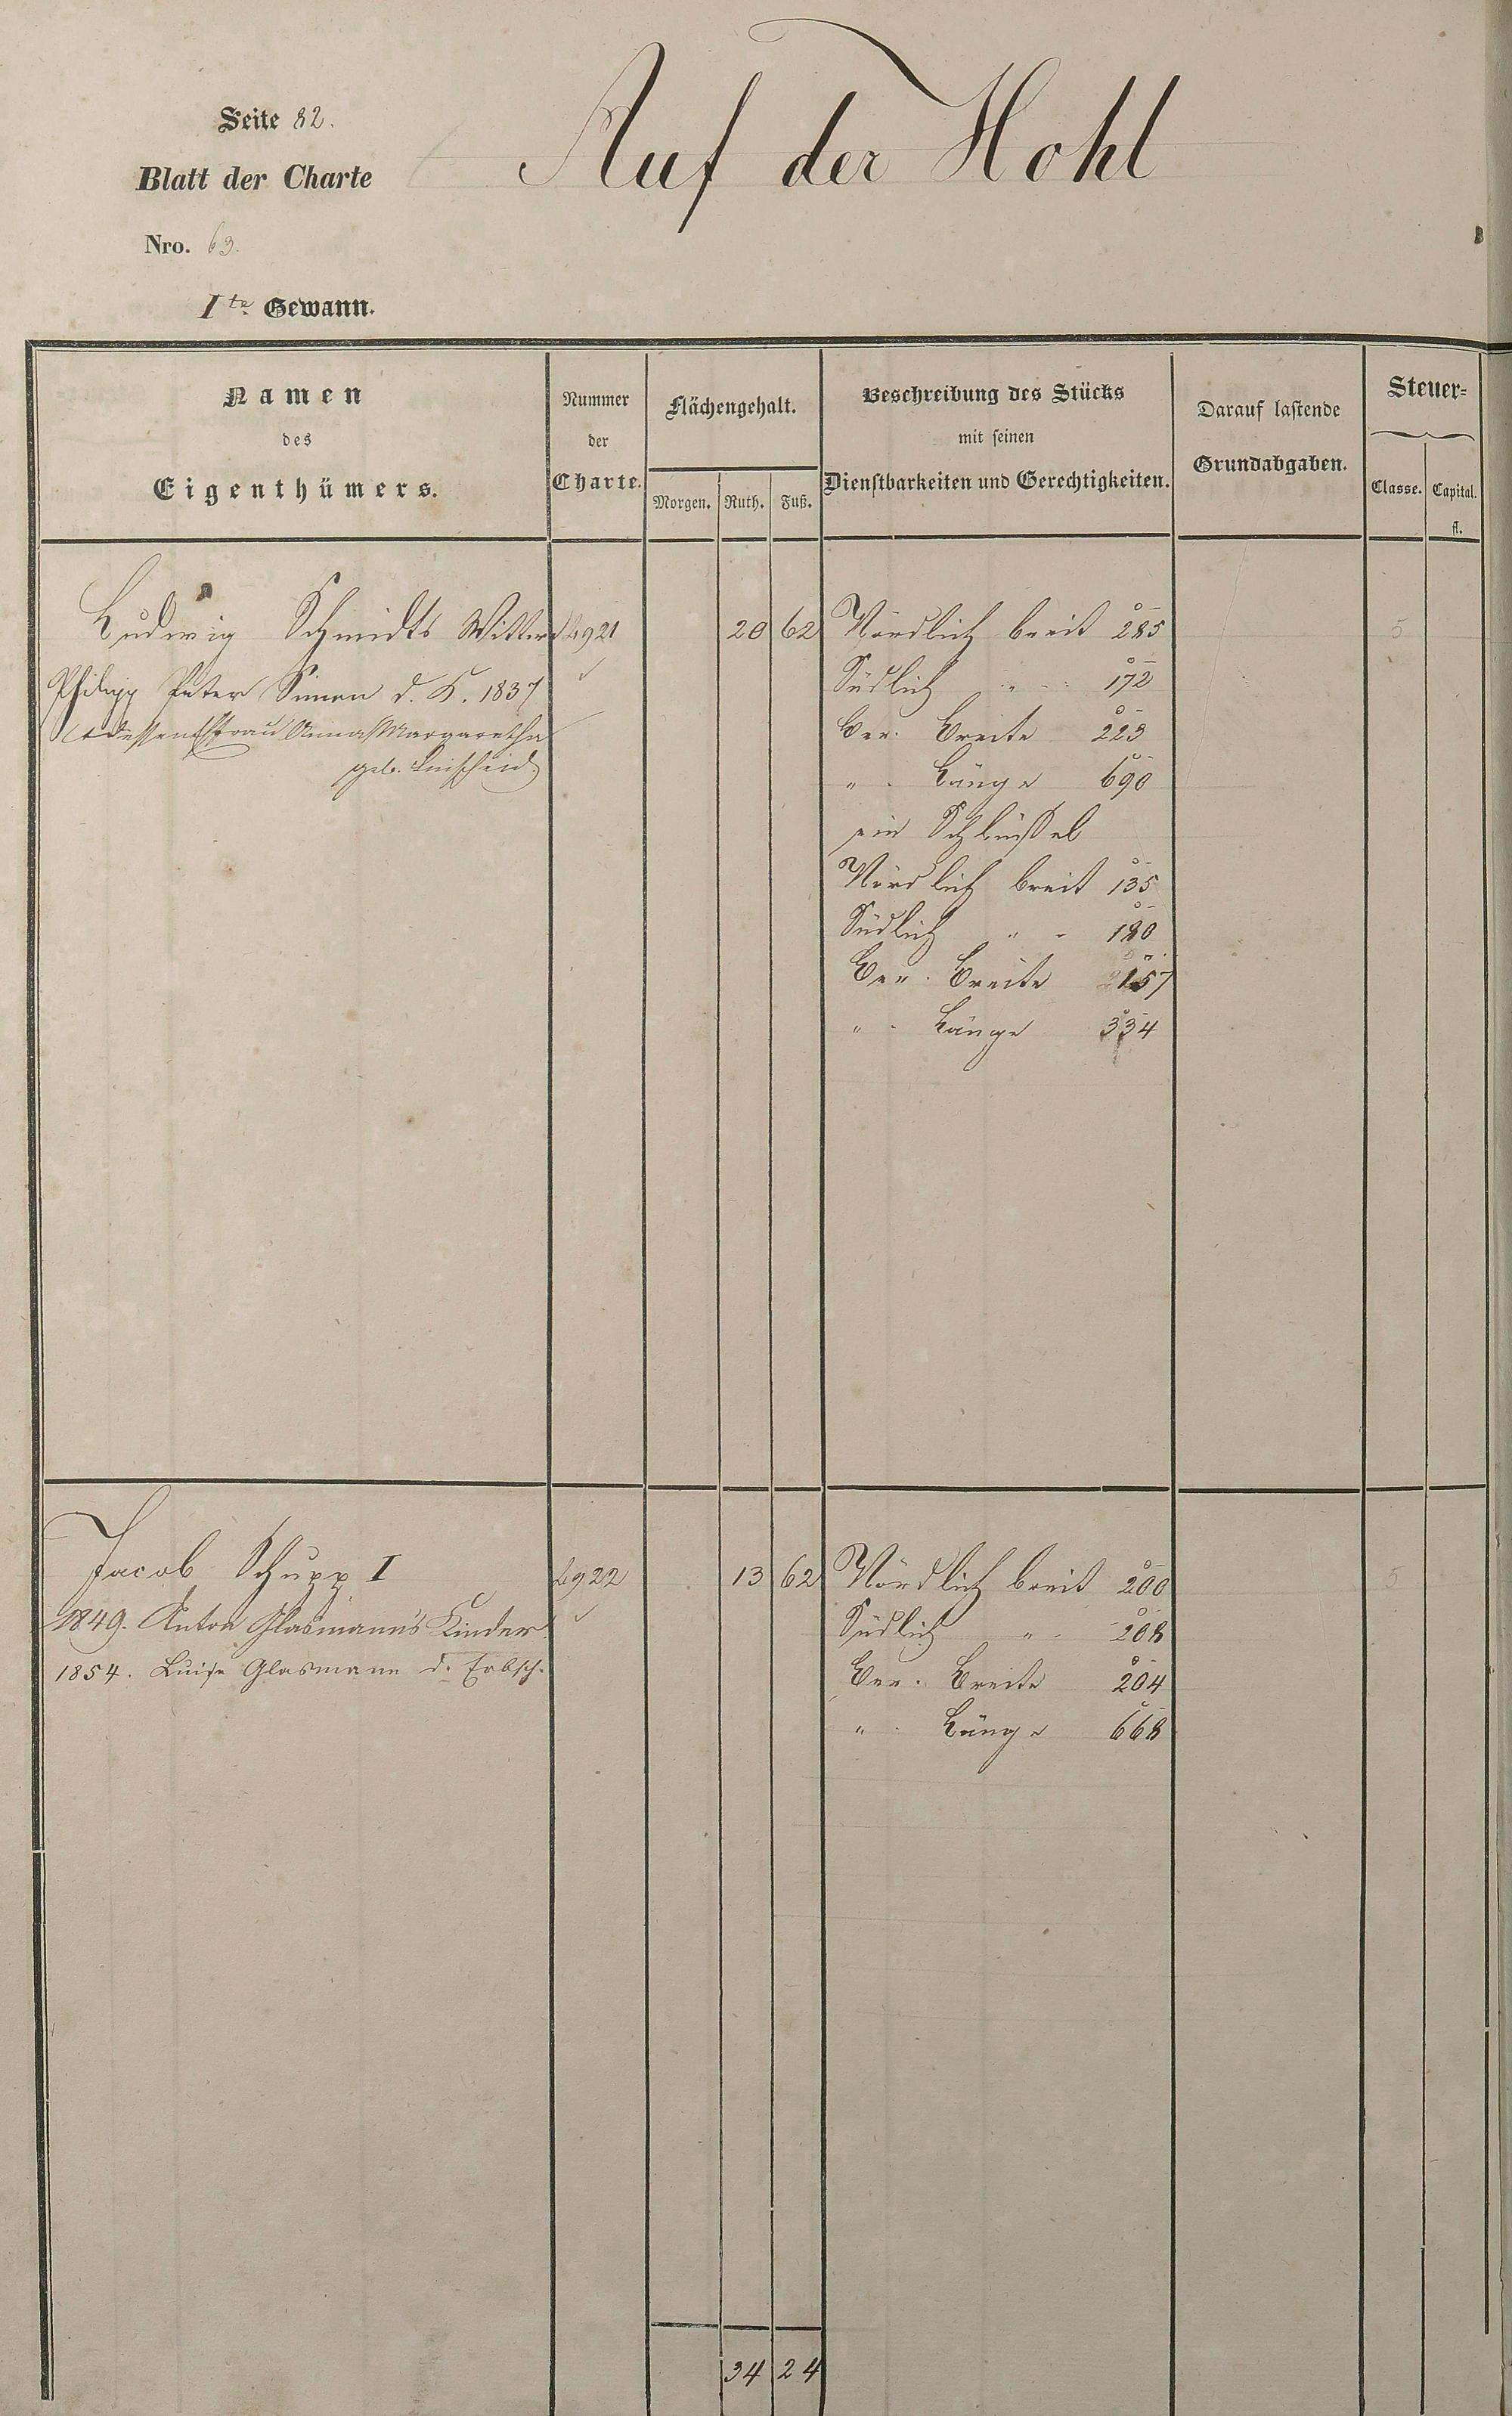 Seite 82.
Auf der Hohl
Blatt der Charte
Nro. 63.
I te Gewann.
Namen des Eigenthümers.
Nummer der Charte.
Flächengehalt.
Morgen. Ruth. Fuß.
Beschreibung des Stücks
mit seinen
Dienstbarkeiten und Gerechtigkeiten.
Darauf lastende
Grundabgaben.
Steuer-
Classe. Capital.
fl.
Ludwig Schmidts Wittwe 4921 20 62 Nördlich breit 285 5
Philipp Peter Simon d. K. 1837 Südlich " 172
dessen Ehefrau Anna Margaretha Ver. Breite 223
geb. " Länge 690
ein Schlüssel
Nördlich breit 135
Südlich " 180
Ver. Breite 157
" Länge 334
Jacob Schupp I 4922 13 62 Nördlich breit 200 5
1849. Anton Glasmann's Kinder. Südlich " 208
1854. Luise Glasmann d. Erbsch. Ver. Breite 204
" Länge 668
34 24